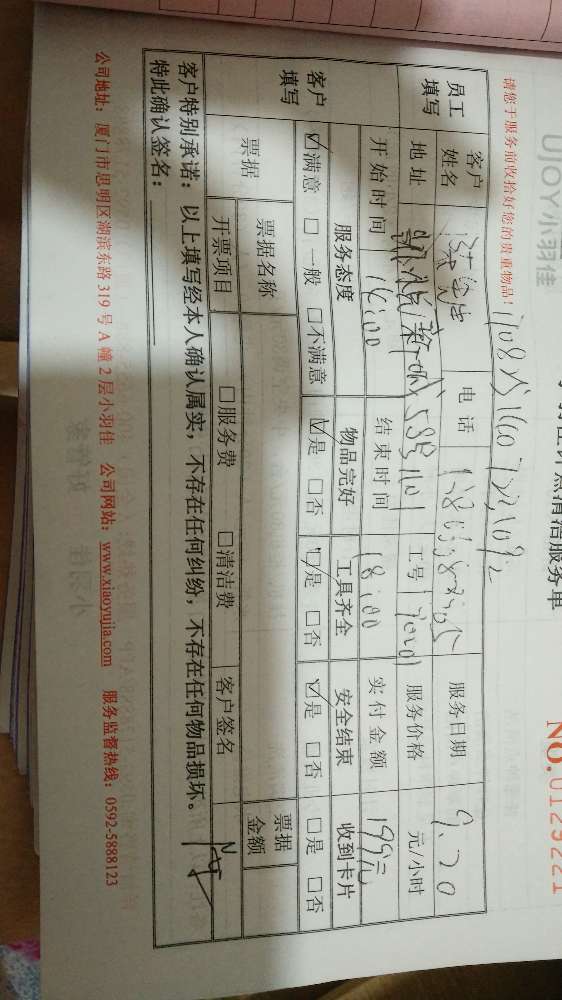 UJOY小羽佳
清洁服务单
NO.0129221
请您于服务前收拾好您的贵重物品!
员工填写
客户姓名
电话
服务日期 9.20
地址
工号
服务价格 元/小时
开始时间 14:00
结束时间 18:00
实付金额 199元
客户填写
服务态度 物品完好 工具齐全 安全结束 收到卡片
☑满意 □一般 □不满意 ☑是 □否 ☑是 □否 ☑是 □否 □是 □否
票据
票据名称
票据金额
开票项目 □服务费 □清洁费
客户签名
客户特别承诺:以上填写经本人确认属实,不存在任何纠纷,不存在任何物品损坏。
特此确认签名:
公司地址:厦门市思明区湖滨东路319号A幢2层小羽佳 公司网站:www.xiaoyujia.com 服务监督热线:0592-5888123